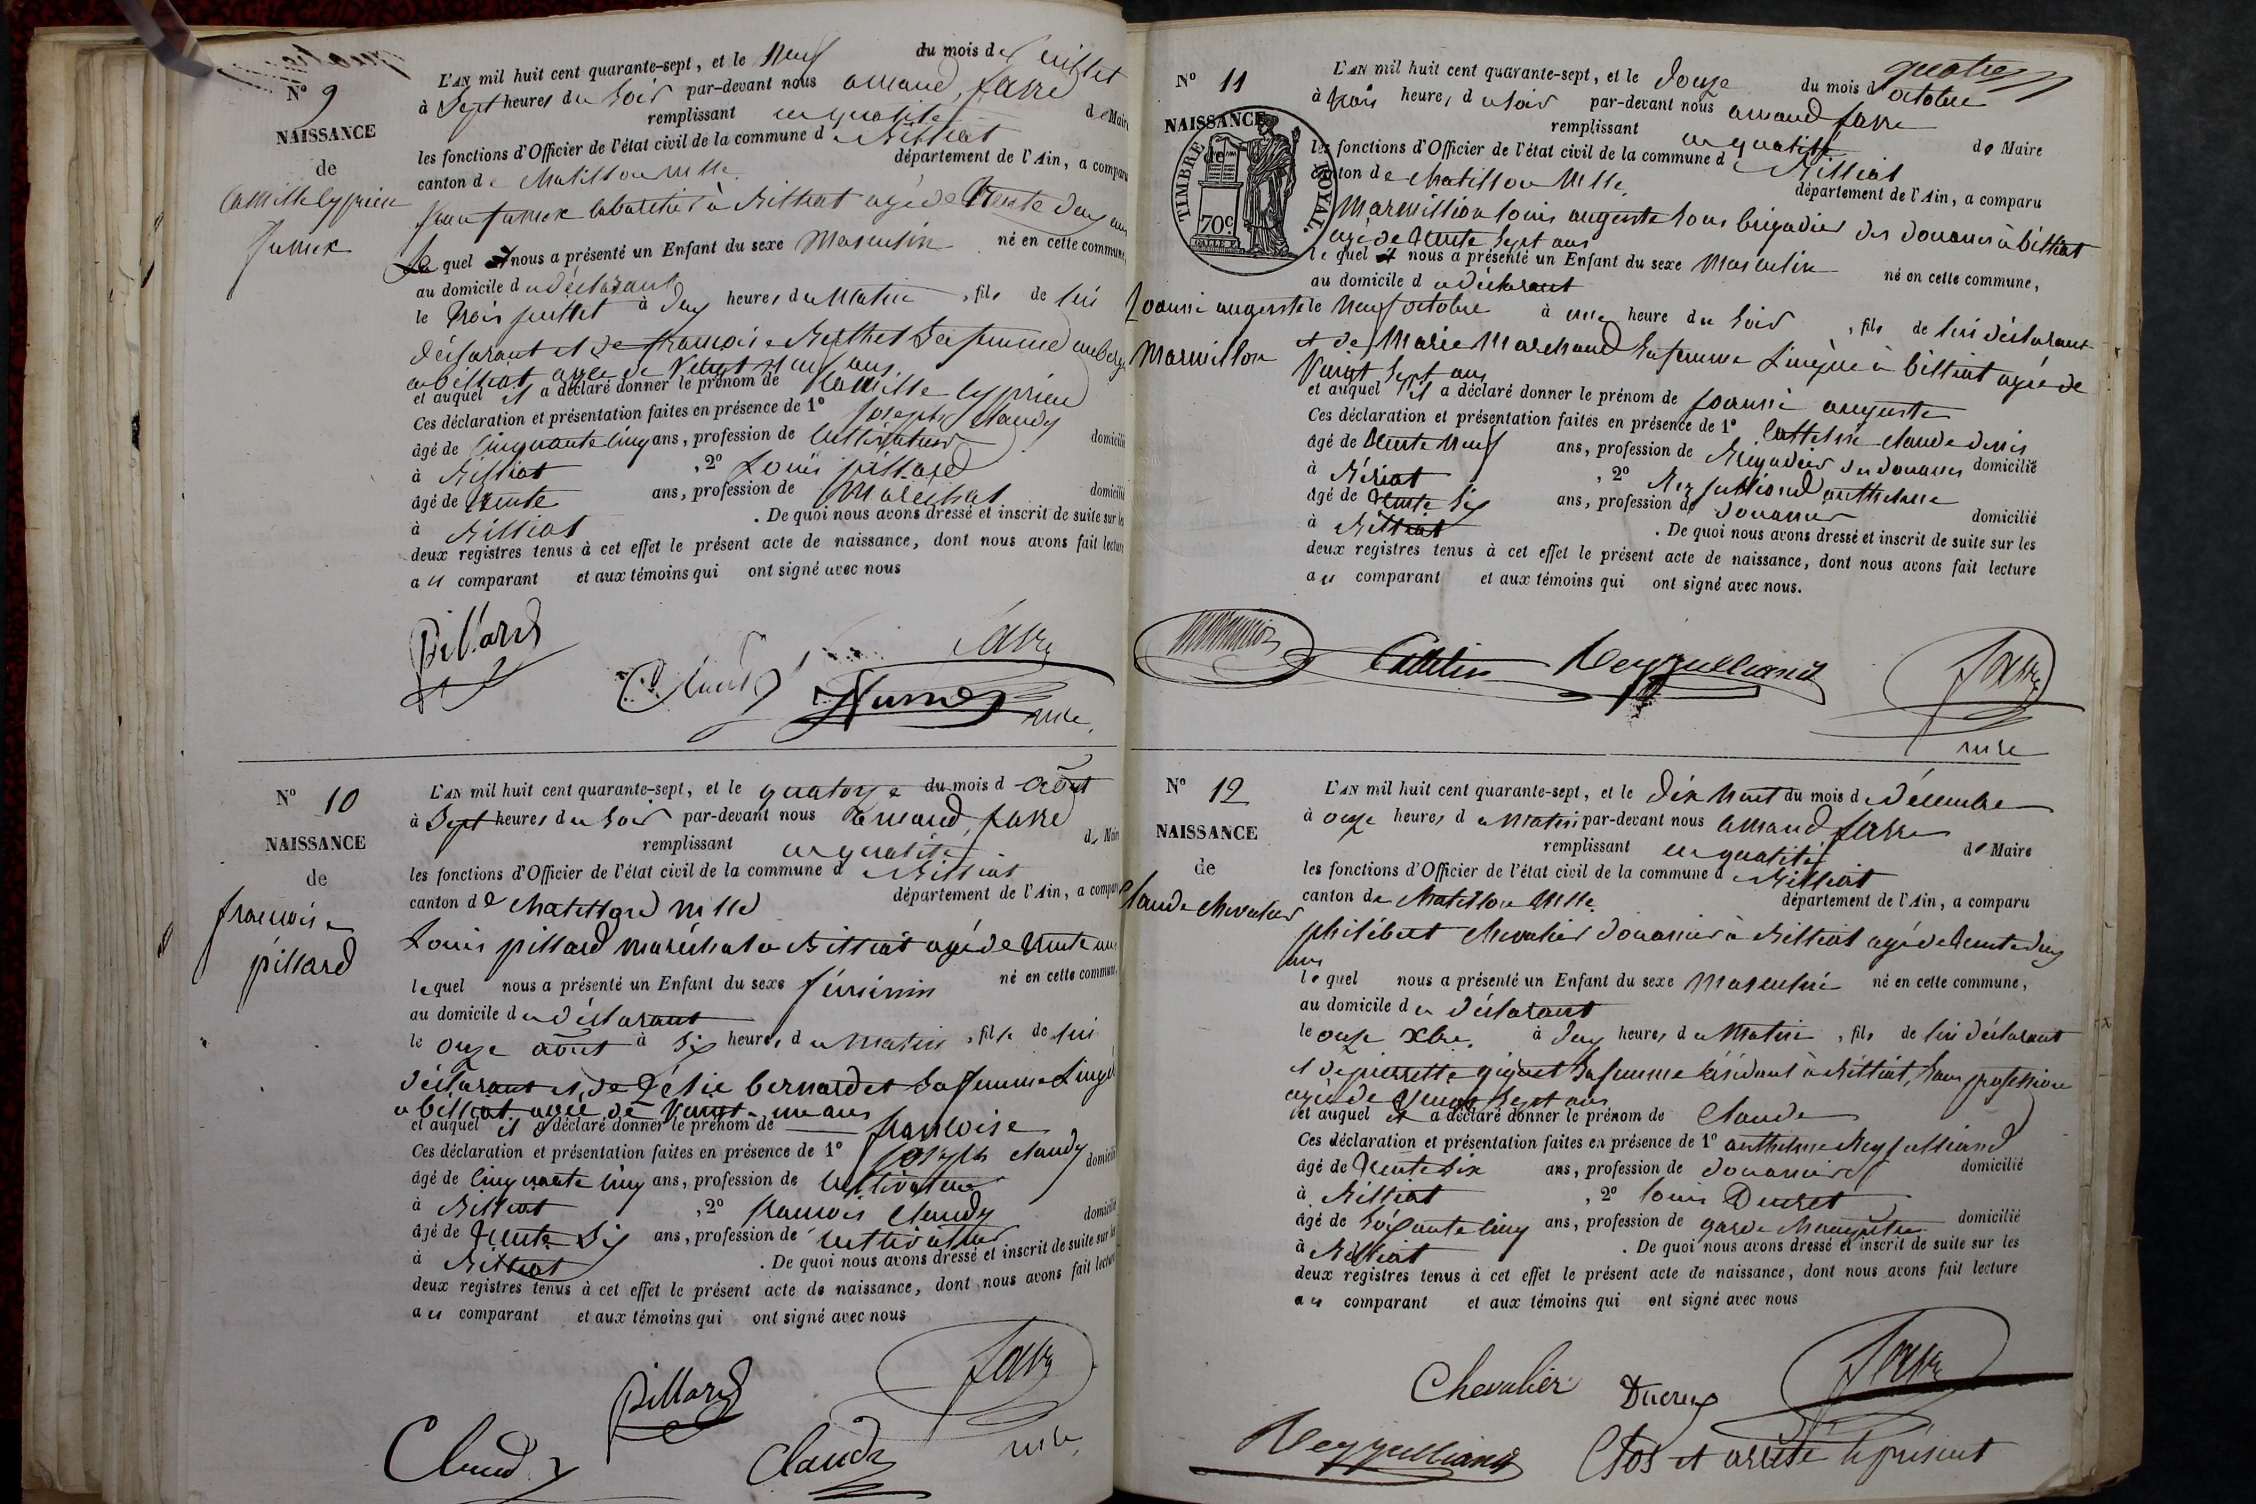 N° 9
NAISSANCE
de
Camille Cyprien
Jumex
L'AN mil huit cent quarante-sept, et le Neuf du mois de juillet
à Sept heures du Soir par-devant nous amand favre
remplissant en qualité de Maire
les fonctions d'Officier de l'état civil de la commune de Billiat
canton de Chatillon département de l'Ain, a comparu
Jumex à Billiat agé de trente deux ans
Le quel nous a présenté un Enfant du sexe Masculin né en cette commune,
au domicile du déclarant
le trois juillet à deux heures du Matin, fils de lui
déclarant et de françoise Berthet Sa femme
a billiat agée de Vingt Neuf ans
et auquel il a déclaré donner le prénom de Camille Cyprien
Ces déclaration et présentation faites en présence de 1° Joseph Claudy
âgé de Cinquante Cinq ans, profession de Cultivateur domicilié
à Billiat, 2° Louis pillard
âgé de trente ans, profession de Maréchal domicilié
à Billiat. De quoi nous avons dressé et inscrit de suite sur les
deux registres tenus à cet effet le présent acte de naissance, dont nous avons fait lecture
au comparant et aux témoins qui ont signé avec nous
Pillard
Claudy
favre
Jumex
mre
N° 10
NAISSANCE
de
françoise
pillard
L'AN mil huit cent quarante-sept, et le quatorze du mois d août
à Sept heures du Soir par-devant nous amand favre
remplissant en qualité de Maire
les fonctions d'Officier de l'état civil de la commune d Billiat
canton de Chatillon département de l'Ain, a comparu
Louis pillard maréchal a Billiat agé de trente ans
lequel nous a présenté un Enfant du sexe féminin né en cette commune,
au domicile du déclarant
le onze août à Six heures du Matin, fille de lui
déclarant et de Zélie bernardet Sa femme Lingère
a billiat agée de Vingt un ans
et auquel il a déclaré donner le prénom de françoise
Ces déclaration et présentation faites en présence de 1° Joseph Claudy
âgé de Cinquante Cinq ans, profession de Cultivateur domicilié
à Billiat, 2° francois Claudy
âgé de trente Six ans, profession de Cultivateur domicilié
à Billiat. De quoi nous avons dressé et inscrit de suite sur les
deux registres tenus à cet effet le présent acte de naissance, dont nous avons fait lecture
au comparant et aux témoins qui ont signé avec nous
Pillard
favre
Claudy
Claudy
mre
quatre
N° 11
NAISSANCE
de
TIMBRE ROYAL.
70c
Joanni auguste
Marmillon
L'AN mil huit cent quarante-sept, et le douze du mois d octobre
à trois heures du soir par-devant nous amand favre
remplissant en qualité de Maire
les fonctions d'Officier de l'état civil de la commune de Billiat
canton de Chatillon département de l'Ain, a comparu
Marmillion Louis auguste Sous brigadier des douanes à billiat
agé de trente Sept ans
le quel nous a présenté un Enfant du sexe Masculin né en cette commune,
au domicile du déclarant
le Neuf octobre à une heure du Soir, fils de lui déclarant
et de Marie Marchand Sa femme Lingère à billiat agée de
Vingt Sept ans
et auquel il a déclaré donner le prénom de Joanni auguste
Ces déclaration et présentation faites en présence de 1° Cattelin Claude denis
âgé de trente Neuf ans, profession de Brigadier des douanes domicilié
à Billiat, 2° Rey julliand anthelme
âgé de trente Six ans, profession de douanier domicilié
à Billiat. De quoi nous avons dressé et inscrit de suite sur les
deux registres tenus à cet effet le présent acte de naissance, dont nous avons fait lecture
au comparant et aux témoins qui ont signé avec nous.
Cattelin
Reyjulliand
favre
mre
N° 12
NAISSANCE
de
Claude Chevalier
L'AN mil huit cent quarante-sept, et le dix huit du mois de décembre
à onze heures du Matin par-devant nous amand favre
remplissant en qualité de Maire
les fonctions d'Officier de l'état civil de la commune d Billiat
canton de Chatillon département de l'Ain, a comparu
philibert Chevalier douanier à Billiat agé de trente deux
ans
le quel nous a présenté un Enfant du sexe Masculin né en cette commune,
au domicile du déclarant
le onze Xbre. à deux heures du Matin, fils de lui déclarant
et de pierrette giguet Sa femme Résidant à Billiat, Sans profession
agée de Vingt Sept ans
et auquel il a déclaré donner le prénom de Claude
Ces déclaration et présentation faites en présence de 1° anthelme Rey julliand
âgé de trente Six ans, profession de douanier domicilié
à Billiat, 2° louis Ducret
âgé de Soixante Cinq ans, profession de garde Champêtre domicilié
à Billiat. De quoi nous avons dressé et inscrit de suite sur les
deux registres tenus à cet effet le présent acte de naissance, dont nous avons fait lecture
au comparant et aux témoins qui ont signé avec nous
Chevalier
favre
Reyjulliand
Clos et arrêté le présent